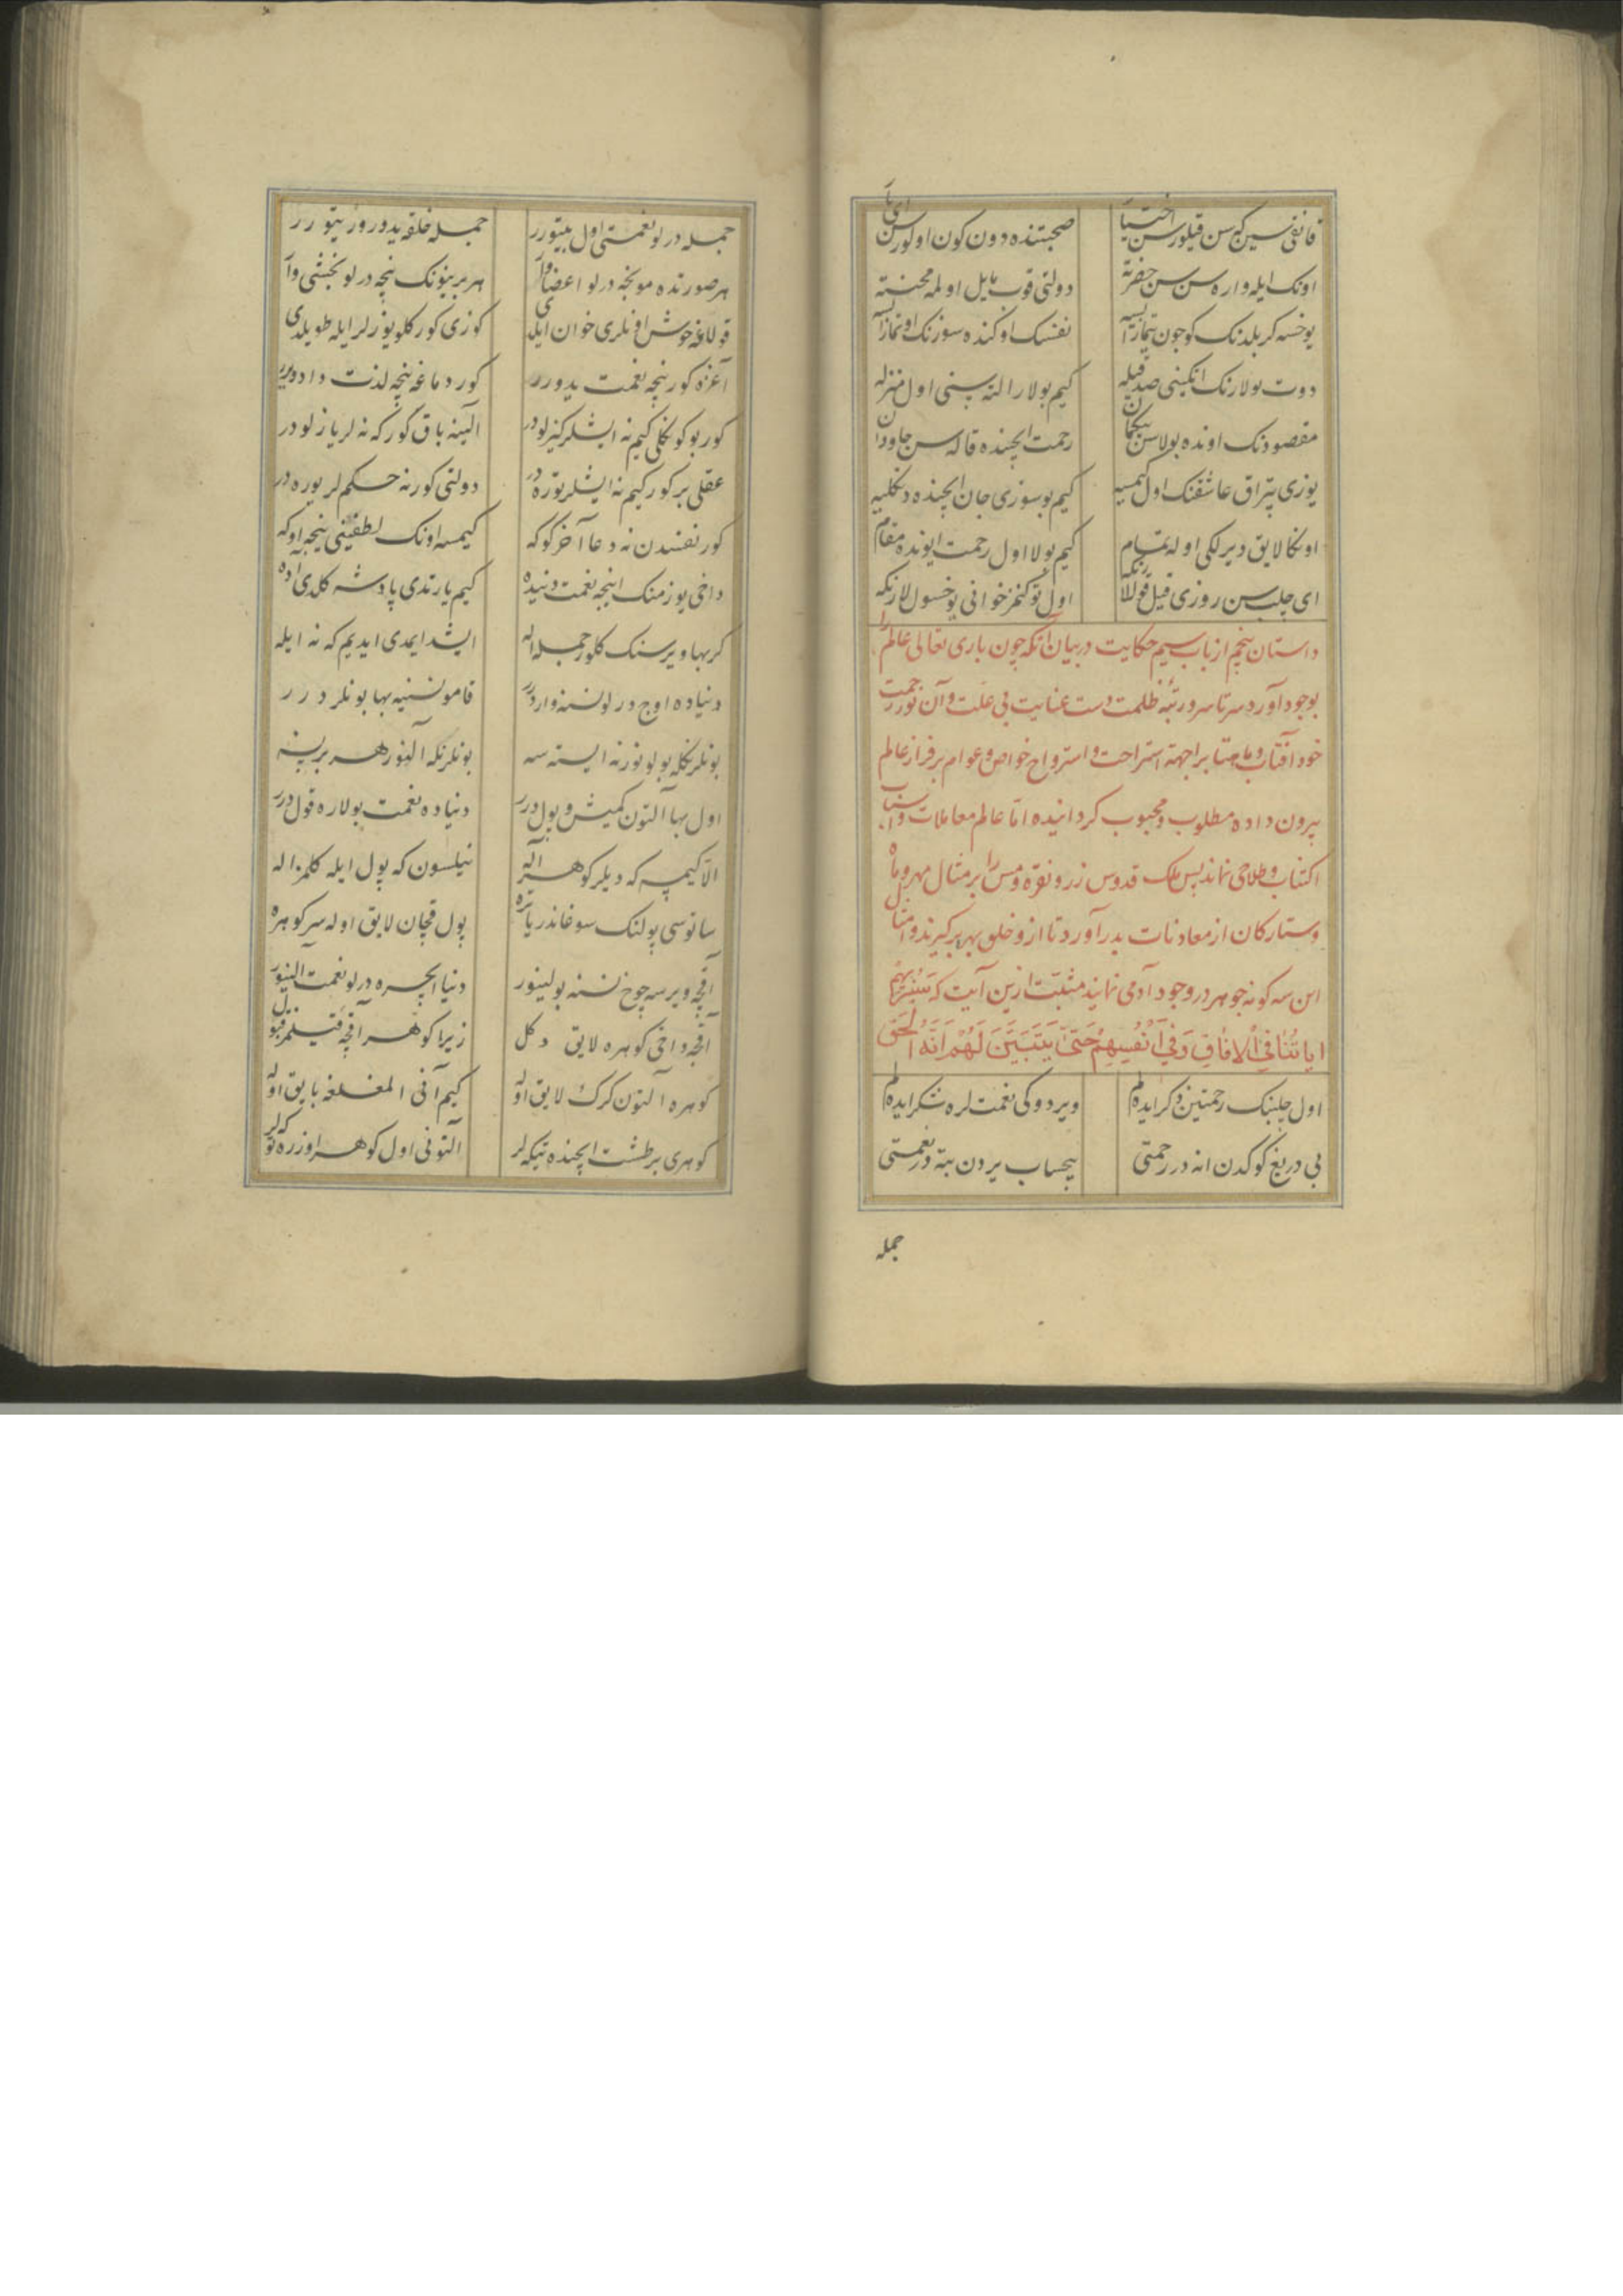 قانغی سین که سن قیلورسن اختیا صحبتنده دون کون اولورسن ای یا
اونک ایله واره سن سن حضرته دولتی قوب مایل اولمه محنته
یوخسه کر بلدنک کوجون یتمازایسه نفسک اوکنده سوزنک اوتمازایسه
دوت بولارنک اتکینی صدقیله کیم بولار التە سنی اول منزله
مقصودنک اونده بولاسن بیکمان رحمت ایچنده قاله سن جاودان
یوزی یتراق عاشقنک اول کیمسیه کیم بو سوزی جان ایچنده دنکلیه
اونکا لایق دیرلکی اوله تمام کیم بولا اول رحمت ایونده مقام
ای چلب سن روزی قیل قوللارنکه اول توکنمز خوانی یوخسول لارنکه
داستان پنجم از باب سیم حکایت در بیان آنکه چون باری تعالی عالم را
بوجود آورد سرتاسر ورتبه ظلمت دست عنایت بی علت وآن نور رحمت
خود آفتاب وماهتاب براجهة استراحت واسترواح خواص وعوام برفراز عالم
بیرون داده مطلوب ومحبوب کردانیده اما عالم معاملات واسباب
اکتساب وطلاحی نماند پس ملک قدوس زر ونقره ومس را بر مثال مهر وماه
وستارکان از معادنات بدر آورد تا ازو خلق بهره برکیرند ومثال
این سه کونه جوهر در وجود آدمی نمایند مثبتت ازین آیت که سَنُرِیهِمْ
ایاتُنَا فِی اْلافٰاقِ وَفِی اَنْفُسِهِمْ حَتّیٰ یَتَبَیَّنَ لَهُمْ اَنَّهُ الْحَقّ
اول چلبنک رحمتین ذکر ایده لم ویردوکی نعمت لره شکر ایده لم
بی دریغ کوکدن انه در رحمتی بیحساب یردن بته در نعمتی
جمله
جمله درلو نعمتی اول بیتورر جمله خلقه یدورور یتورر
هر صورتده مونجه درلو اعضا وار هر بربینونک نیچه درلو بخشی وار
قولاغه خوش اونلری خوان ایلدی کوزی کور کلو یوزلر ایله طویلدی
آغزه کور نیچه نعمت یدورر کور دماغه نیچه لذت دادویر
کور بو کونکلی کیم نه ایشلر کیزلودر الینه باق کور که نه لر یازلودر
عقلی بر کور کیم نه ایشلر توره در دولتی کور نه حکم لر یوره در
کور نفسدن نه دعا آخر کوکه کیمسه اونک لطفینی نیجه اوکه
داخی یوز منک اینجه نعمت دنیده کیم یارتدی پادشه کلدی اده
کر بها ویرسنک کلور جمله اله ایشد ایمدی ایدیم که نه ایله
دنیاده اوج درلو نسنه واردرر قامو نسنیه بها بونلر درر
بونلرنکله بولونور نه ایسته سه بونلرنکه آلنور هر بر نسه
اول بها آلتون کمیش و پول درر دنیاده نعمت بولاره قول درر
الا کیم که دیلر کوهر اله نیلسون که پول ایله کلمز اله
ساتوسی پولنک سوغاندر یا تره پول قچان لایق اوله سر کوهره
آقچه ویرسه چوخ نسنه بولینور دنیا ایچره درلو نعمت الینور
آقچه داخی کوهره لایق دکل زیرا کوهر آقچه قیلمز قبول
کوهره آلتون کرک لایق اوله کیم آنی المغلغه بایق اوله
کوهری بر طشت ایچنده تیکه لر آلتونی اول کوهر اوزره توکه لر